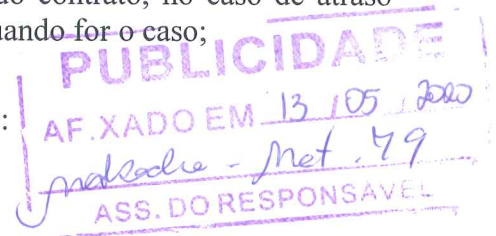 do contrato, no caso de atraso
uando for o caso;
PUBLICIDADE
:
AF.XADO EM 13 / 05 / 2020
- Mat. 79
ASS. DO RESPONSAVEL